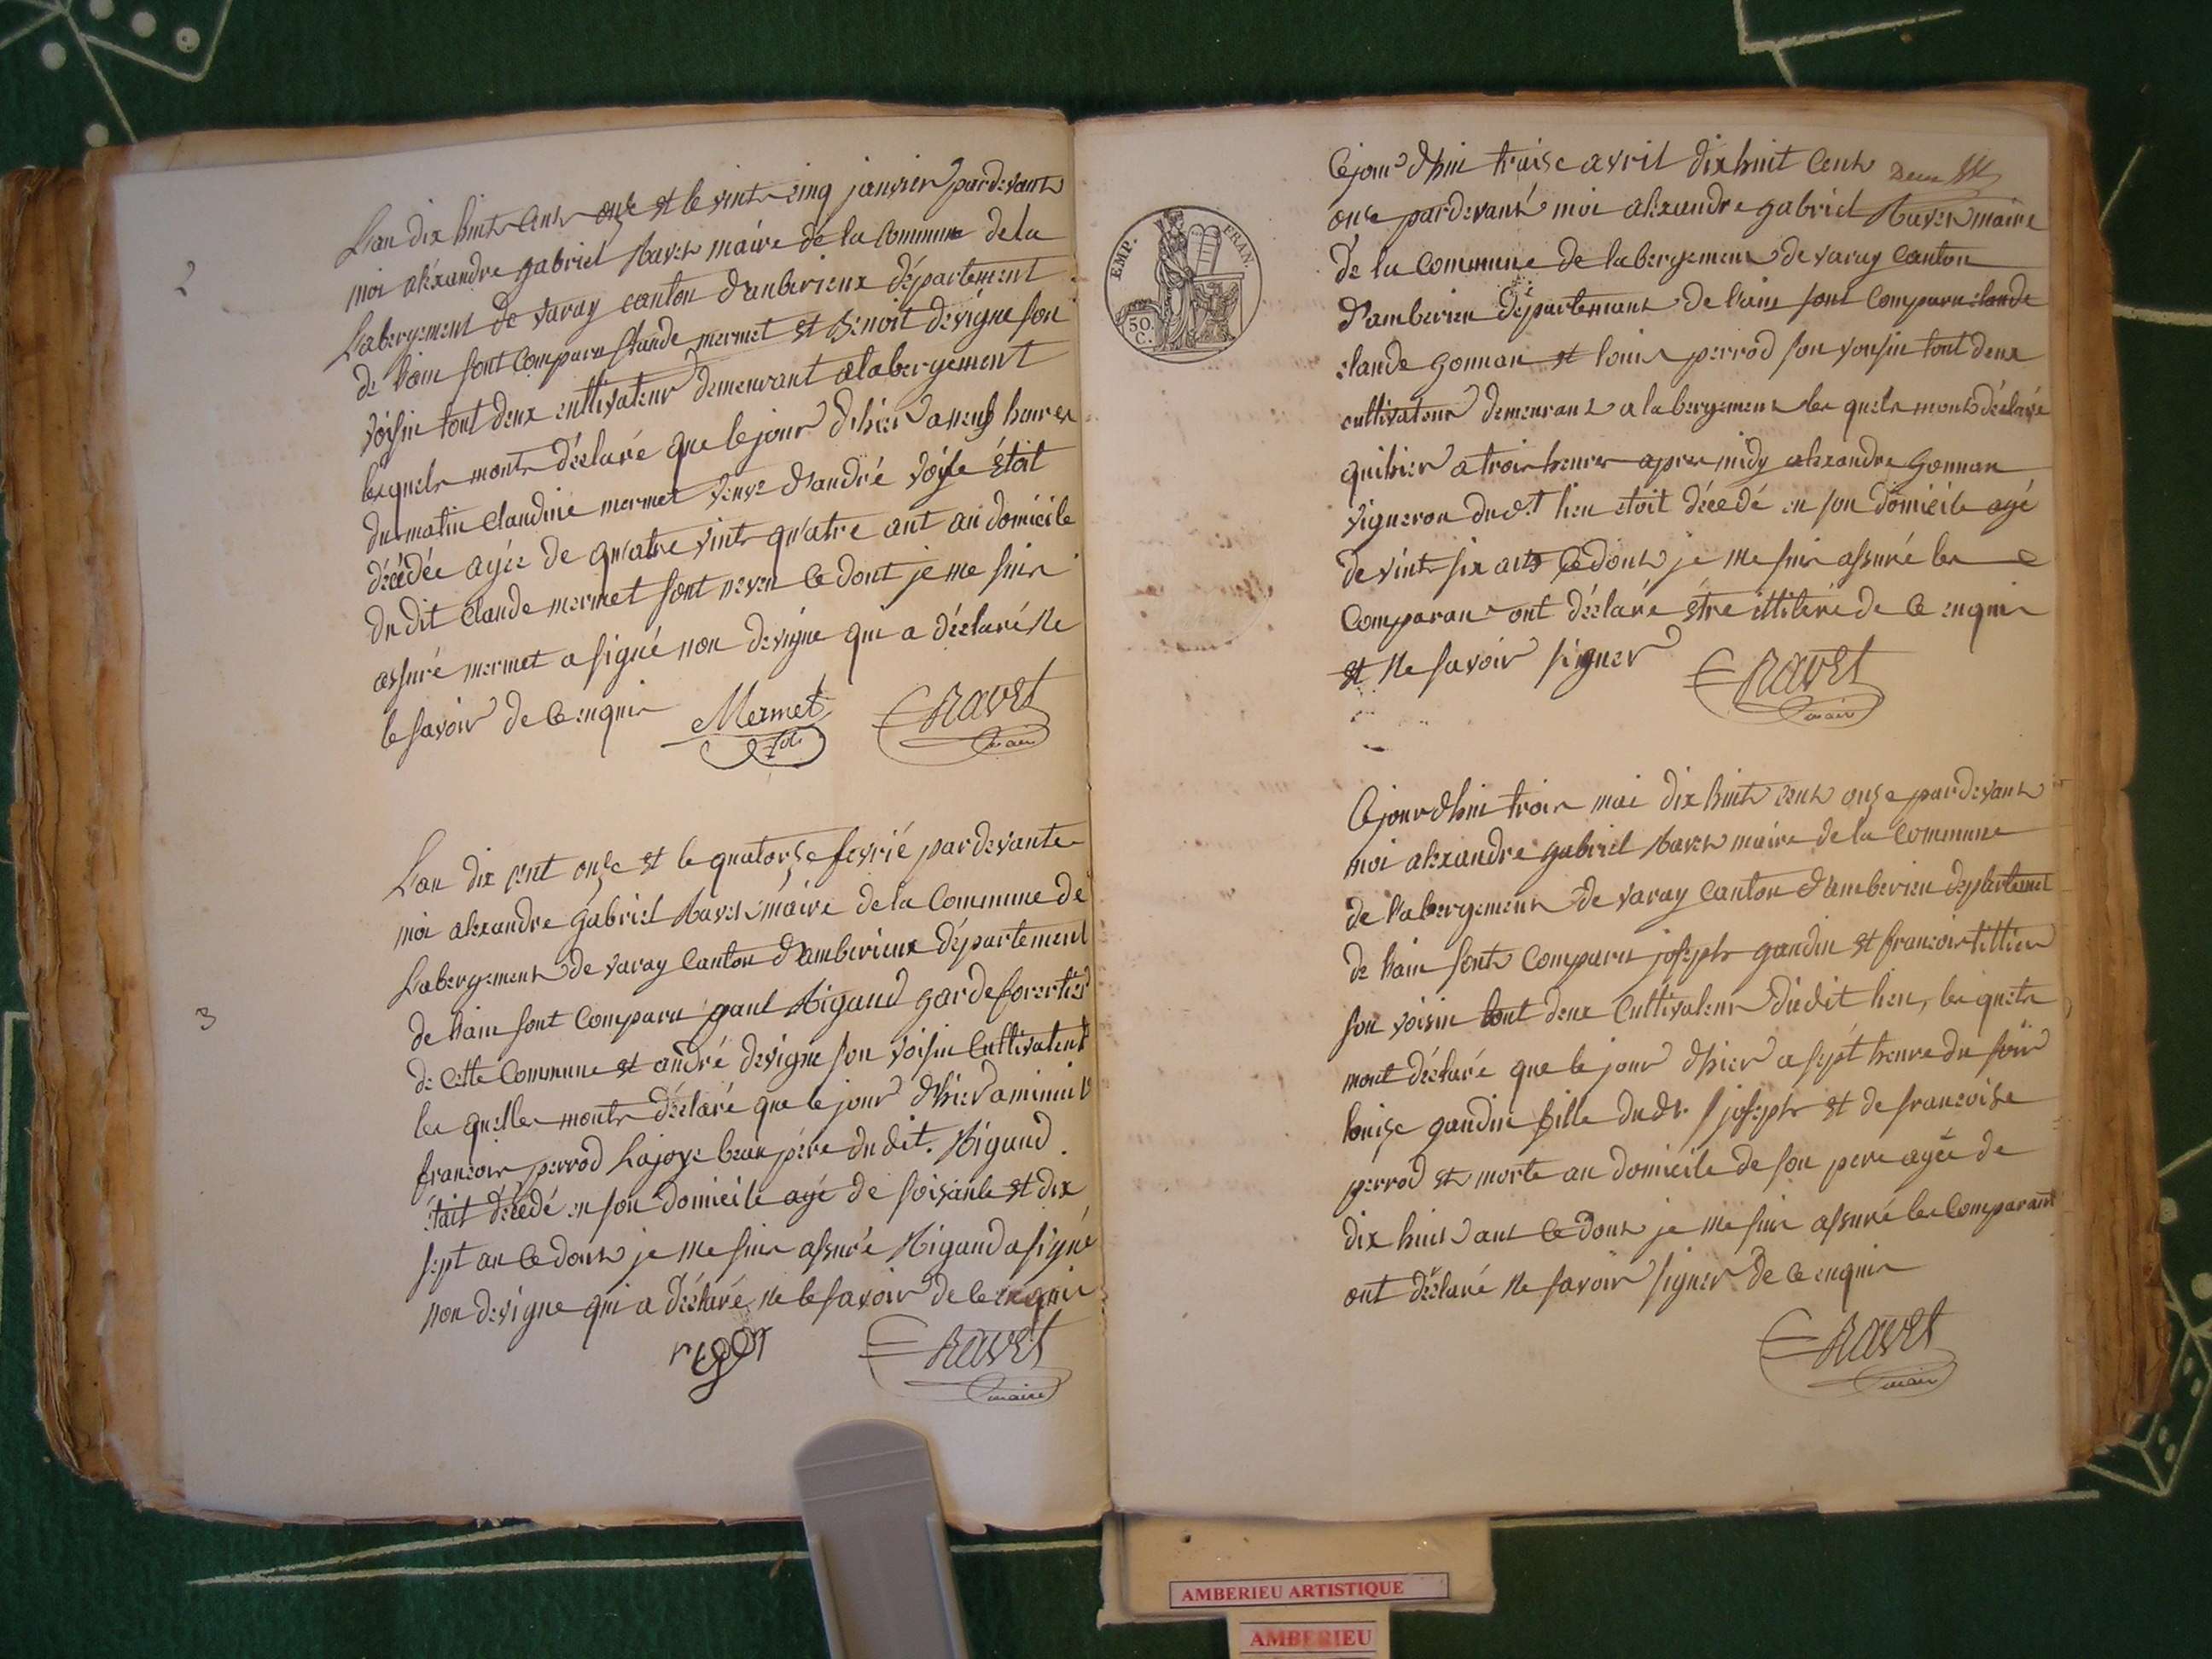 2
L'an dix huits cents onze et le vints cinq janvier pardevants
moi aléxandre gabriel Ravets maire de la commune de la
Labergements de varay canton d'anberieux département
de l'ain sont comparu claude mermet et Benoit devigne son
voisin tout deux cultivateur demeurant alabergement
lesquels monts déclaré que lejour d'hier a neuf heures
du matin claudine mermet veuve d'andré voisle étoit
décédée agée de quatre vints quatre ant au domicile
du dit claude mermet sont neveu ce dont je me suis
assuré mermet a signé non devigne qui a déclaré ne
le savoir de ce enquis
Mermet
Ravet
maire
3
L'an dix cent onze et le quatorze fevrié pardevante
moi alexandre gabriel Ravets maire de la commune de
Labergements de varay canton d'amberieux département
de l'ain sont comparu paul Rigaud garde forestier
de cette commune et andré devigne son voisin cultivateur
les quelles monts déclaré que le jour d'hier a minuit
francois perrod Lajoye beau pére du dit. Rigaud.
était décédé en son domicile agé de soisante et dix
sept an ce donts je me suis assuré Rigaud a signé
non devigne qui a déclaré ne le savoir de ce enquis
rigot
Ravet
maire
EMP. FRAN.
50. C.
Cejour d'hui traise avril dix huit cents
onze pardevant moi aléxandre gabriel Ravets maire
de la commune de labergements de varay canton
d'amberieu départemant de l'ain sont comparu claude
claude gonnan et louis perrod son voisin tout deux
cultivateur demeurant a labergements les quels monts déclaré
quihier a trois heures apres midy alexandre gonnan
vigneron dudt lieu etoit décedé en son domicile agé
de vints six ans ce donts je me suis assuré les
comparan ont déclaré être illiteré de ce enquis
et ne savoir signer
Ravet
maire
Cejourdhui trois mai dix huits cents onze pardevants
moi alexandre gabriel Ravets maire de la commune
de l'abergements de varay canton d'amberieu departemet
de l'ain sonts comparu joseph gaudin et francois tillier
son voisin tout deux cultivateur dudit lieu, les quels
mont déclaré que le jour d'hier a sept heure du soir
louise gaudin fille du dt. joseph et de francoise
perrod et morte au domicile de son pere agée de
dix huits ans ce donts je me suis assuré les comparant
ont déclaré ne savoir signer de ce enquis
Ravet
maire
AMBERIEU ARTISTIQUE
AMBERIEU